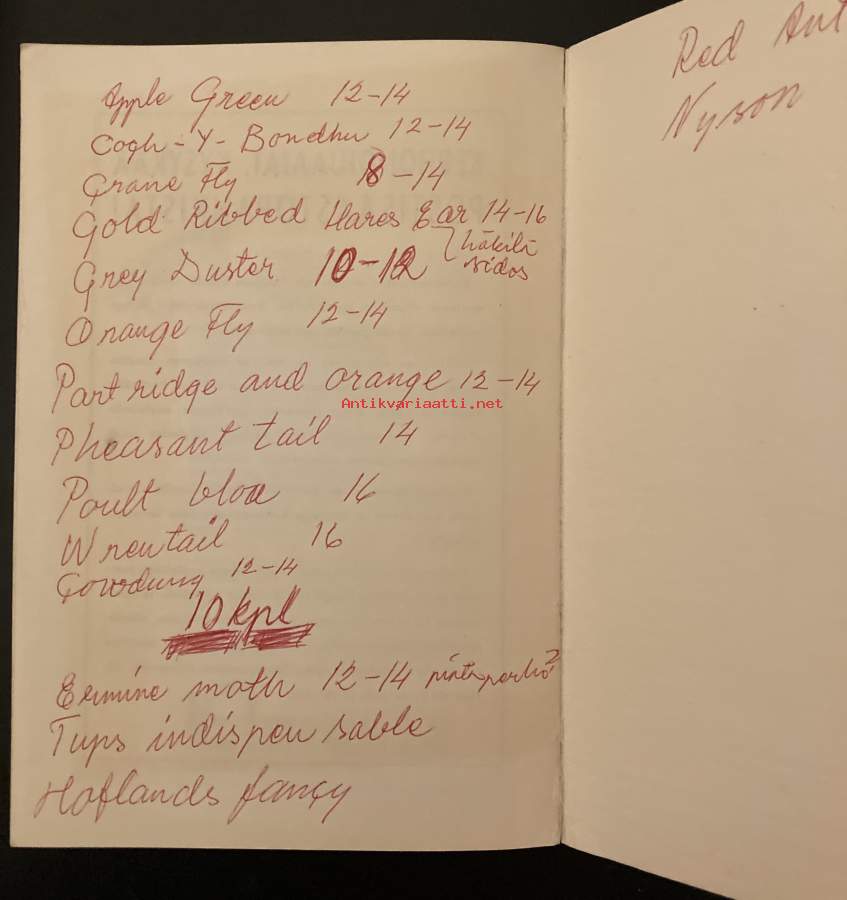 Apple Green 12-14
Cogh-Y-Bondhu 12-14
Crane Fly 8-14
Gold Ribbed Hares Ear 14-16
häkilä
sidos
Grey Duster 10-12
Orange Fly 12-14
Partridge and orange 12-14
Antikvariaatti.net
Pheasant tail 14
Poult bloa 16
Wrentail 16
Cowdung 12-14
10 kpl
Ermine moth 12-14 pintaperho ?
Tups indispensable
Hoflands fancy
Red Ant
Nyson